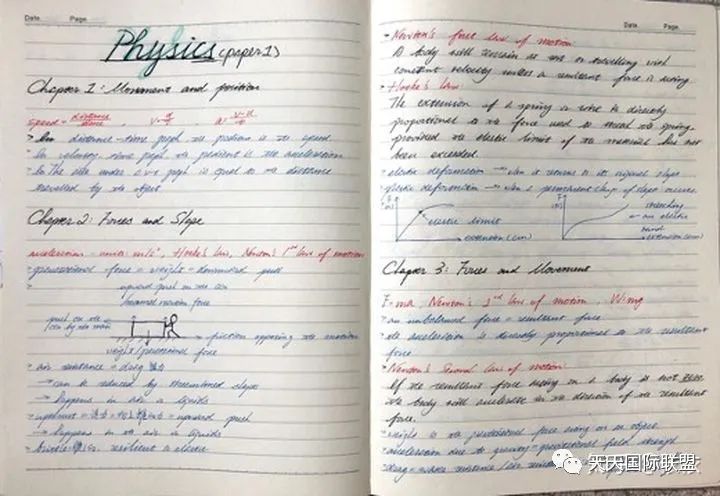 Date. Page.
Physics (paper 1)
Chapter 1: Movement and position
speed = distance/time , v = d/t , a = v-u/t
In distance-time graph the gradient is the speed
In velocity-time graph the gradient is the acceleration
In the area under a v-t graph is equal to the distance
travelled by the object
Chapter 2: Forces and Shape
acceleration - units: m/s², Hooke's law, Newton's 1st law of motion
gravitational force = weight = downward pull
upward push on the
/normal reaction force
push on the
by the man
friction opposing the motion
weight/gravitational force
air resistance = drag
→ can be reduced by streamlined shapes
→ happens in air & liquids
upthrust = = upward push
→ happens in the air & liquids
brittle resilient & elastic
Date. Page.
Newton's first law of motion
A body will remain at rest or travelling with
constant velocity unless a resultant force is acting
Hooke's law:
The extension of a spring or wire is directly
proportional to the force used to the spring
provided the elastic limit of the material has not
been exceeded.
elastic deformation → when it returns to its original shape
plastic deformation → when a permanent change of shape occurs
F (N)
elastic limit
extension (cm)
F (N)
stretching
an elastic
band
extension (cm)
Chapter 3: Forces and Movement
F=ma, Newton's 3rd law of motion, W=mg
an unbalanced force = resultant force
the acceleration is directly proportional to the resultant
force
Newton's Second law of motion
If the resultant force acting on a body is not zero
the body will accelerate in the direction of the resultant
force.
weight is the gravitational force acting on an object
acceleration due to gravity = gravitational field strength
drag = water resistance / air
天天国际联盟